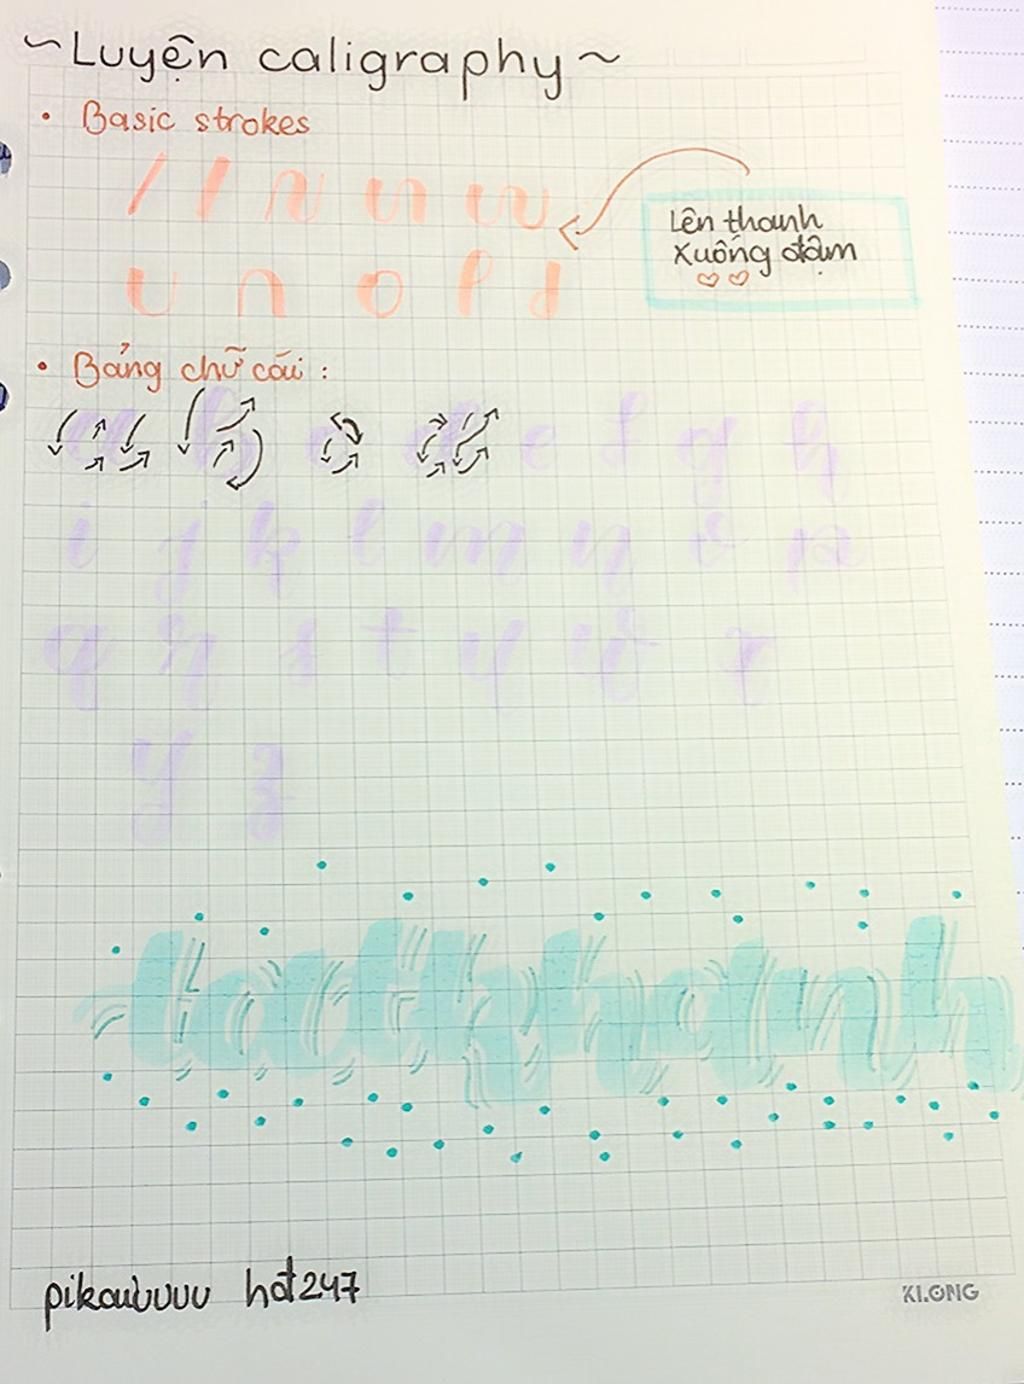 ~Luyện caligraphy~
• Basic strokes
Lên thanh
Xuống đậm
u n o l d
• Bảng chữ cái :
a b c d e f g h
i j k l m n o p
q r s t u v x
y z
hđ247
KLONG